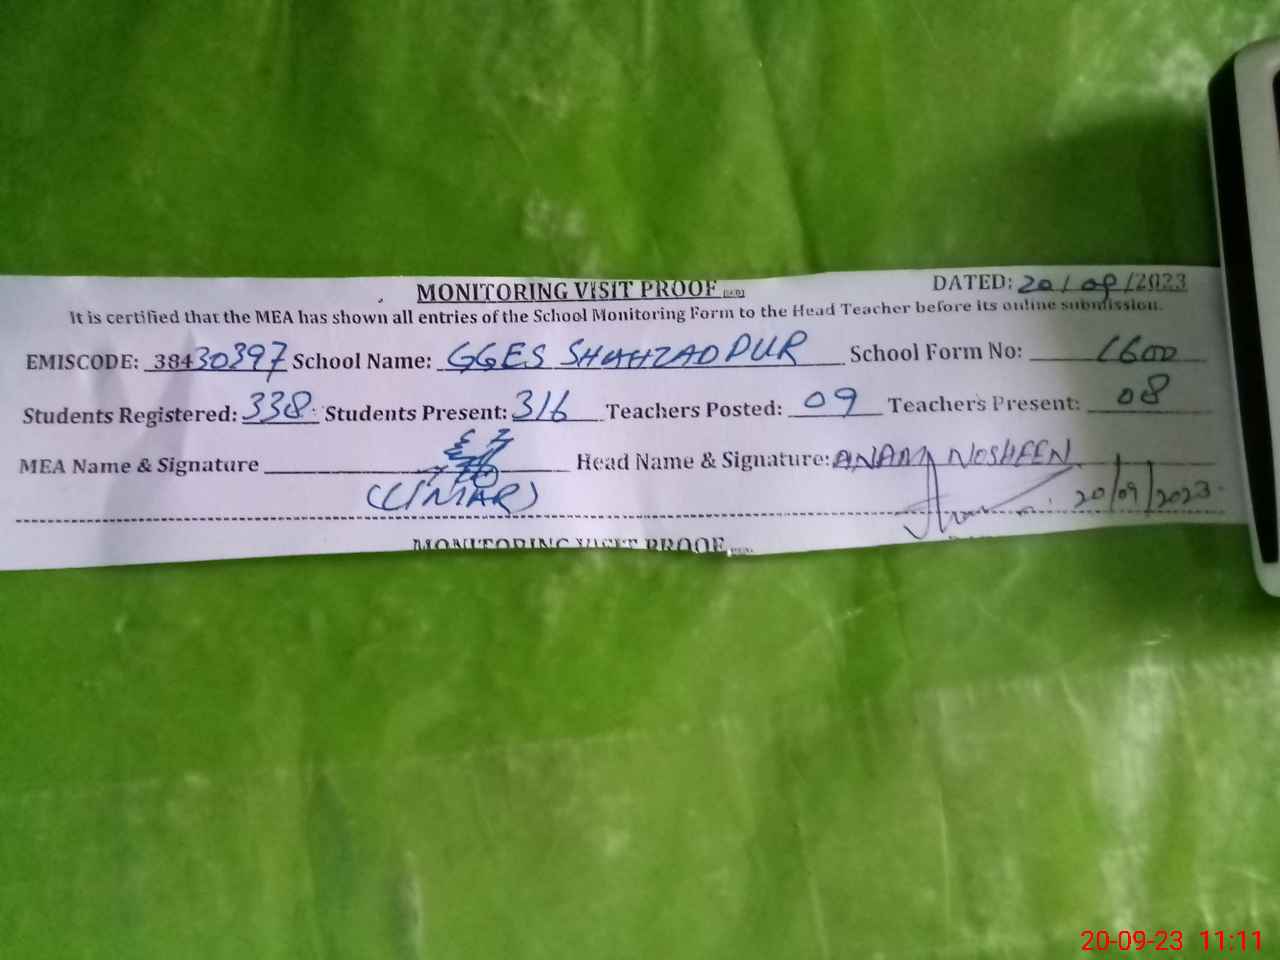 MONITORING VISIT PROOF
DATED: 20/09/2023
It is certified that the MEA has shown all entries of the School Monitoring Form to the Head Teacher before its online submission.
EMISCODE: 38430397 School Name: GGES SHAHZADPUR School Form No: 1600
Students Registered: 338 Students Present: 316 Teachers Posted: 09 Teachers Present: 08
MEA Name & Signature Head Name & Signature: ANAM NOSHEEN
(UMAR) 20/09/2023
MONITORING VISIT PROOF
20-09-23 11:11